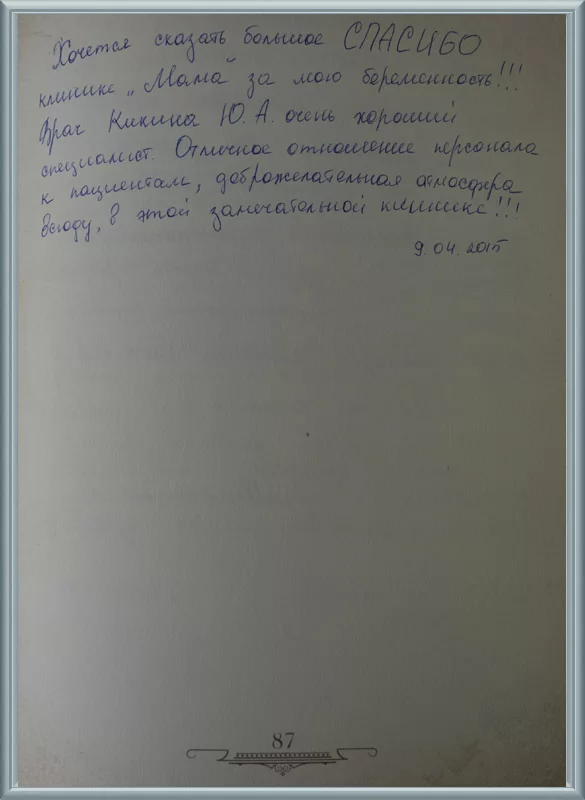 Хочется сказать большое СПАСИБО
клинике „Мама“ за мою беременность!!!
Врач Кикина Ю.А. очень хороший
специалист. Отличное отношение персонала
к пациентам, доброжелательная атмосфера
всюду, в этой замечательной клинике!!!
9.04.2015
87